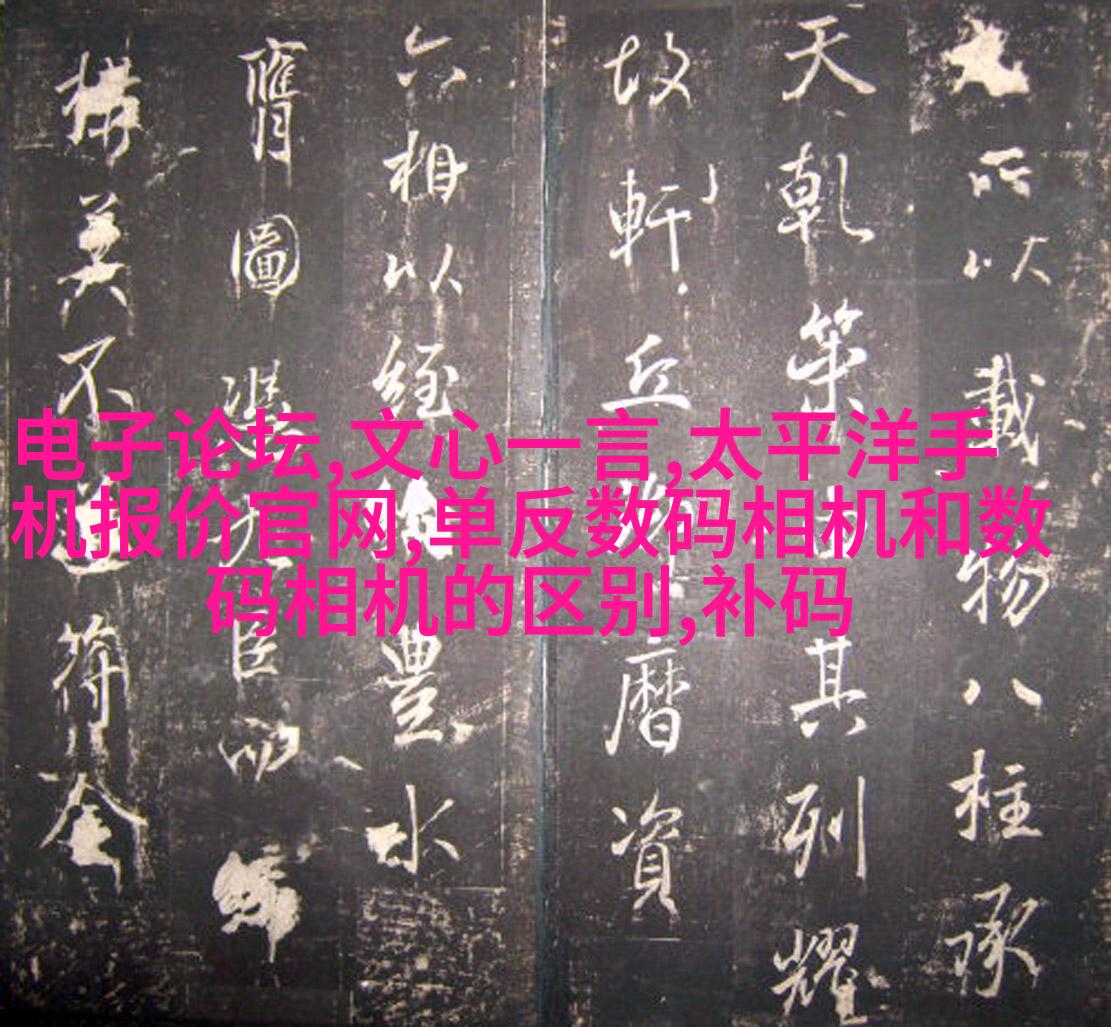 所以載物八柱承
天乾策其列耀
故軒丘曆資
六相以經豐水
膺圖臣
構美不符奎
电子论坛,文心一言,太平洋手
机报价官网,单反数码相机和数
码相机的区别,补码